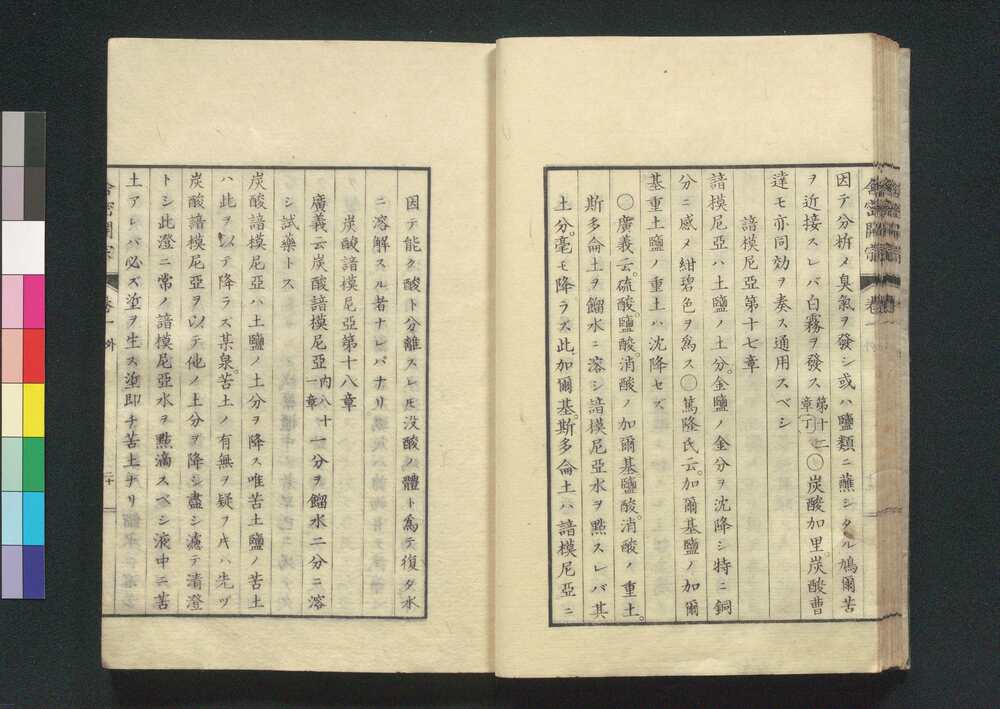 因テ分拆メ臭氣ヲ發シ或ハ鹽類ニ蘸シタル鳩爾苦
ヲ近接スレバ白霧ヲ發ス第十二章丁○炭酸加里。炭酸曹
達モ亦同効ヲ奏ス通用スベシ
諳模尼亞第十七章
諳模尼亞ハ土鹽ノ土分。金鹽ノ金分ヲ沈降シ特ニ銅
分ニ感メ紺碧色ヲ爲ス○篤隆氏云。加爾基鹽ノ加爾
基重土鹽ノ重土ハ沈降セズ
○廣義云。硫酸。鹽酸。消酸ノ加爾基鹽酸。消酸ノ重土。
斯多侖土ヲ餾水ニ溶シ諳模尼亞水ヲ點スレバ其
土分。毫モ降ラズ。此加爾基。斯多侖土ハ諳模尼亞ニ
舎密開宗
卷
因テ能ク酸ト分離スレ𪜈没酸ノ體ト爲テ復タ水
ニ溶解スル者ナレバナリ
炭酸諳模尼亞第十八章
廣義云炭酸諳模尼亞内八十一章一分ヲ餾水二分ニ溶
シ試藥トス
炭酸諳模尼亞ハ土鹽ノ土分ヲ降ス唯苦土鹽ノ苦土
ハ此ヲ以テ降ラズ某泉。苦土ノ有無ヲ疑フ𪜈ハ先ヅ
炭酸諳模尼亞ヲ以テ他ノ土分ヲ降シ盡シ濾テ清澄
トシ此澄ニ常ノ諳模尼亞水ヲ點滴スベシ液中ニ苦
土アレバ必ズ塗ヲ生ス塗即チ苦土ナリ
舎密開宗
卷一外
二十